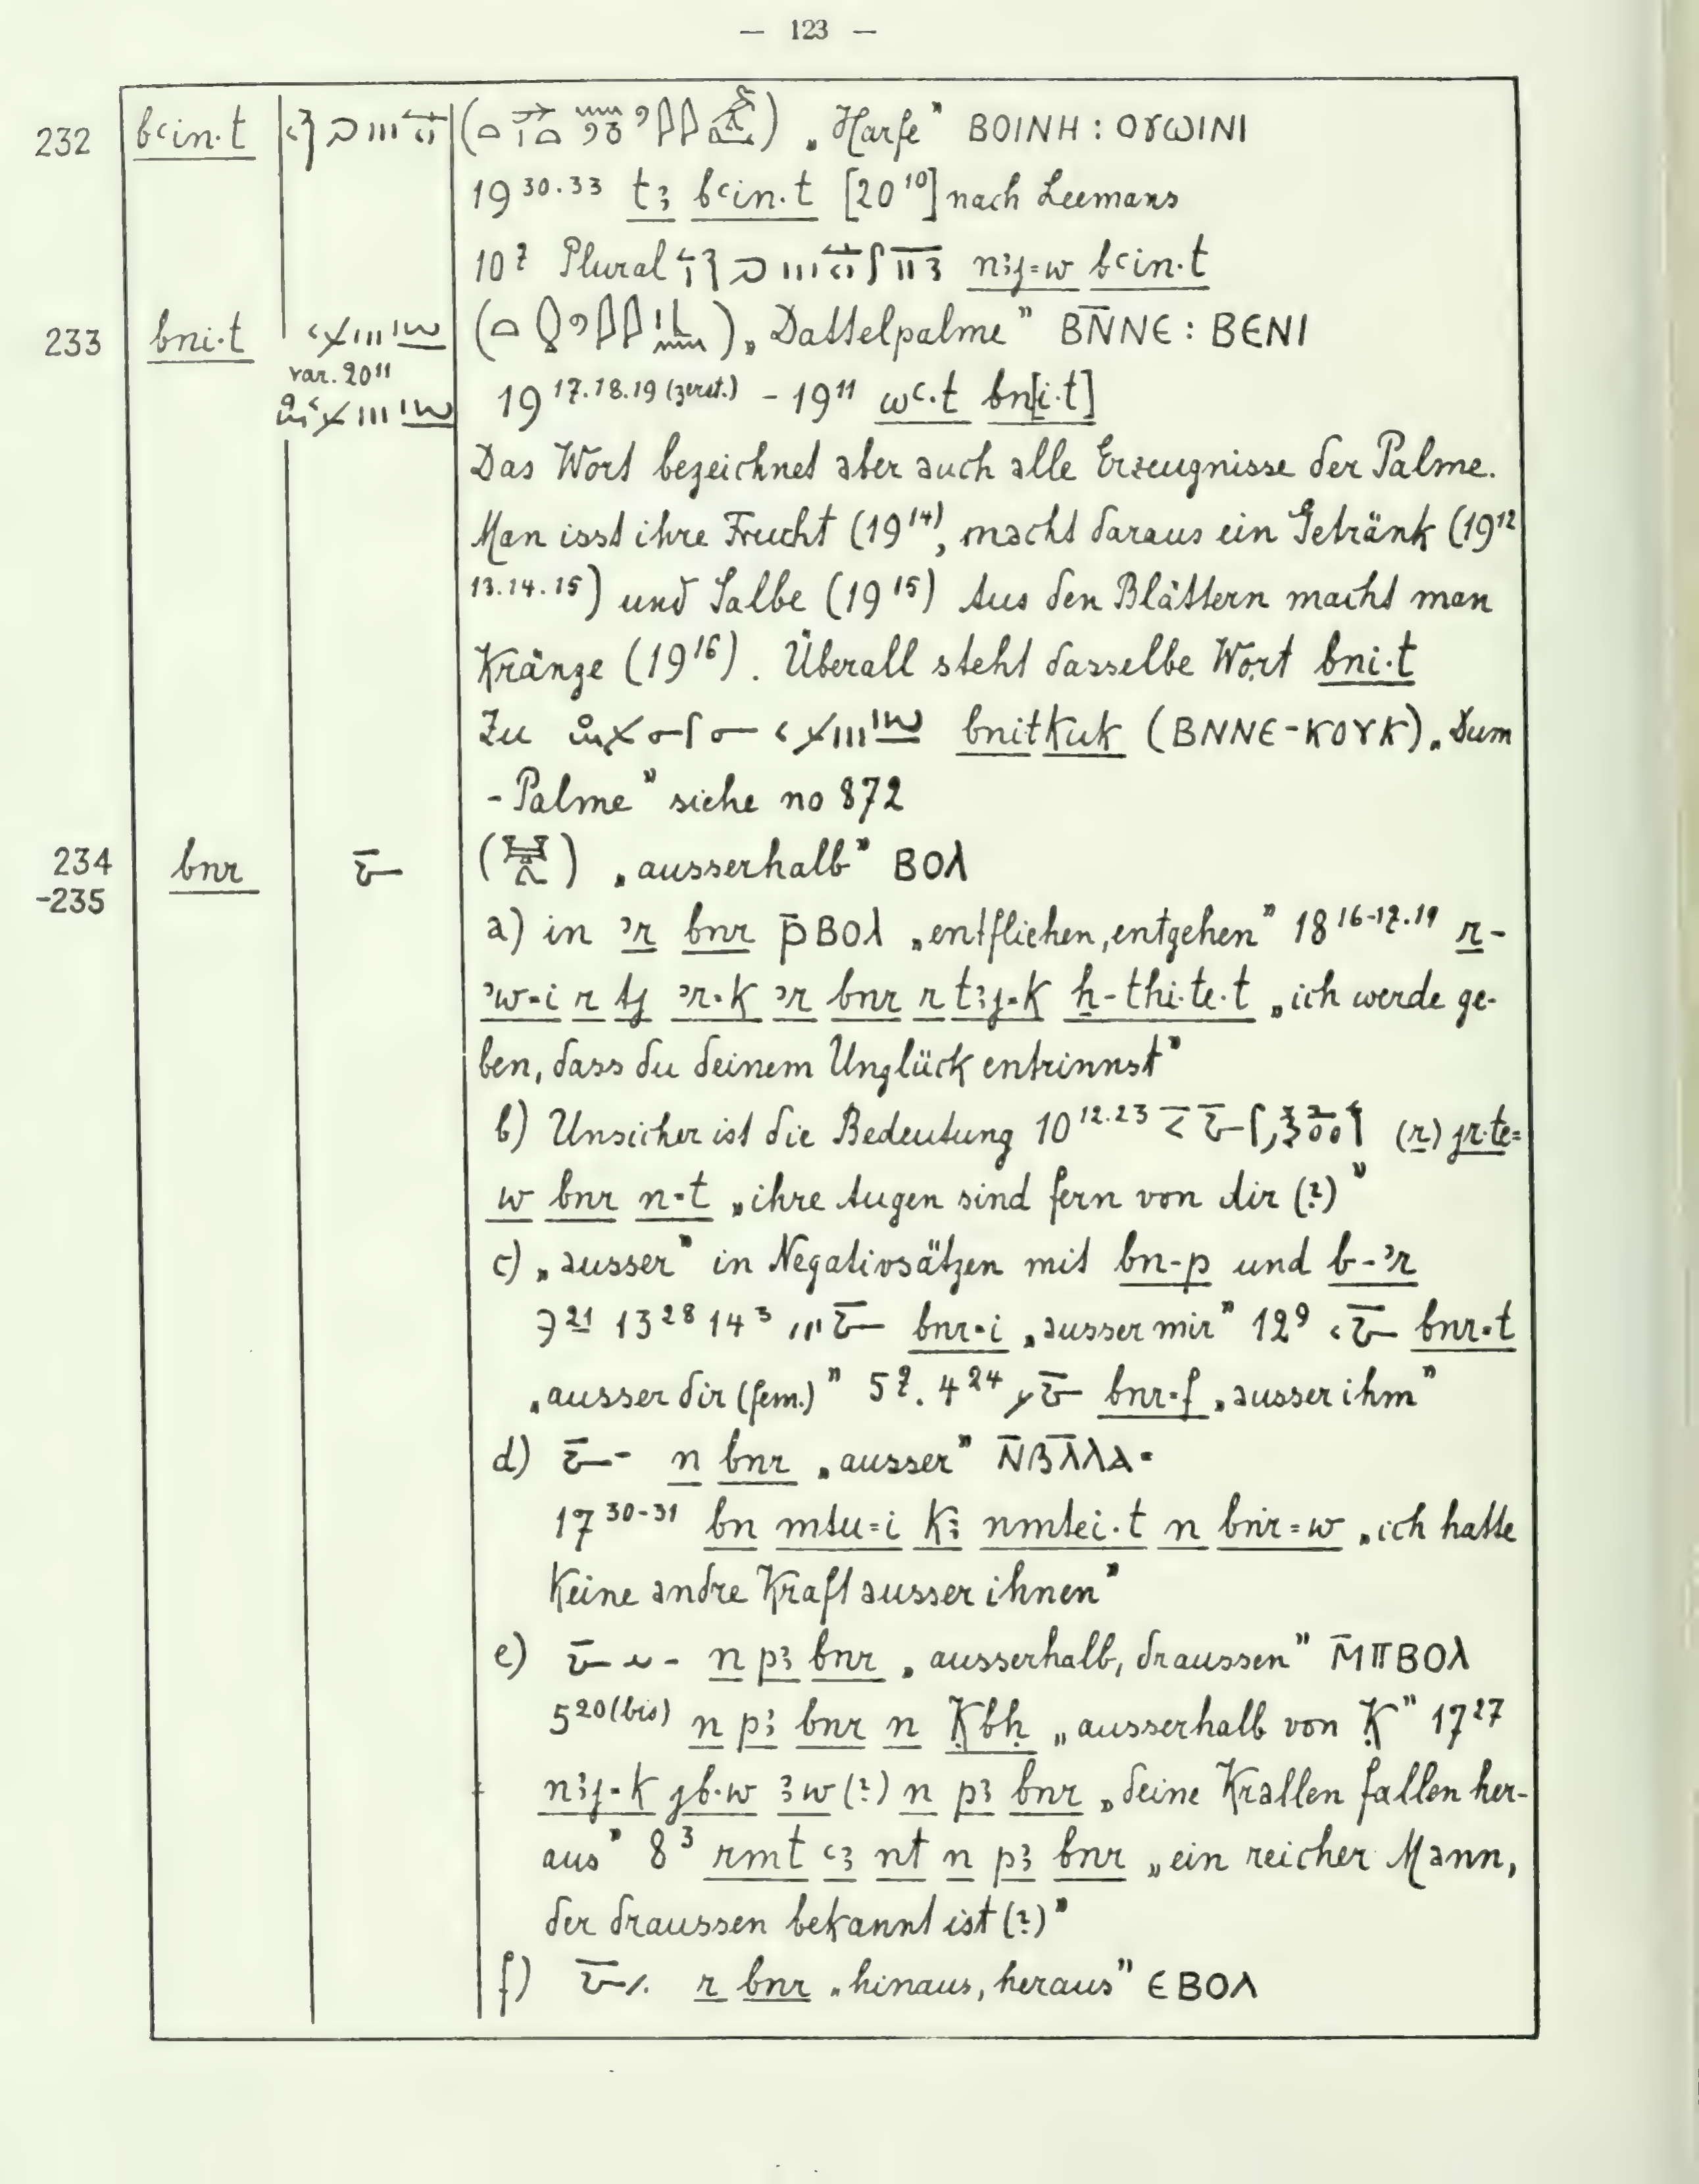 — 123 —
232 bꜥin·t „Harfe" ⲂⲞⲒⲚⲎ : ⲞⲨⲰⲒⲚⲒ
19 30.33 tꜣ bꜥin·t [20 10] nach Leemans
10 7 Plural nꜣj=w bꜥin·t
233 bni·t „Dattelpalme" ⲂⲚ̄ⲚⲈ : ⲂⲈⲚⲒ
var. 20 11
19 17.18.19 (zerst.) - 19 11 wꜥ·t bn[i·t]
Das Wort bezeichnet aber auch alle Erzeugnisse der Palme.
Man isst ihre Frucht (19 14), macht daraus ein Getränk (19 12
13.14.15) und Salbe (19 15) Aus den Blättern macht man
Kränze (19 16). Überall steht dasselbe Wort bni·t
Zu bnitkuk (ⲂⲚⲚⲈ-ⲔⲞⲨⲔ) „Dum
-Palme" siehe no 872
234 bnr „ausserhalb" ⲂⲞⲖ
-235
a) in ʾr bnr ⲣ̄ⲂⲞⲖ „entfliehen, entgehen" 18 16-17.19 r-
ʾw=i r tj ʾr=k ʾr bnr r tꜣj=k ẖ-thi·te·t „ich werde ge-
ben, dass du deinem Unglück entrinnst"
b) Unsicher ist die Bedeutung 10 12.23 (r) jr·te=
w bnr n=t „ihre Augen sind fern von dir (?)"
c) „ausser" in Negativsätzen mit bn-p und b-ʾr
13 28 14 3 bnr=i „ausser mir" 12 9 bnr=t
„ausser dir (fem.)" 5 7. 4 24 bnr=f „ausser ihm"
d) n bnr „ausser" Ⲛ̄ⲂⲖ̄ⲖⲀ=
17 30-31 bn mtu=i kꜣ nmtei·t n bnr=w „ich hatte
keine andre Kraft ausser ihnen"
e) n pꜣ bnr „ausserhalb, draussen" Ⲙ̄ⲠⲂⲞⲖ
5 20 (bis) n pꜣ bnr n Ḳbḥ „ausserhalb von Ḳ" 17 27
nꜣj=k jb·w ꜣw (?) n pꜣ bnr „deine Krallen fallen her-
aus" 8 3 rmt ꜥꜣ nt n pꜣ bnr „ein reicher Mann,
der draussen bekannt ist (?)"
f) r bnr „hinaus, heraus" ⲈⲂⲞⲖ